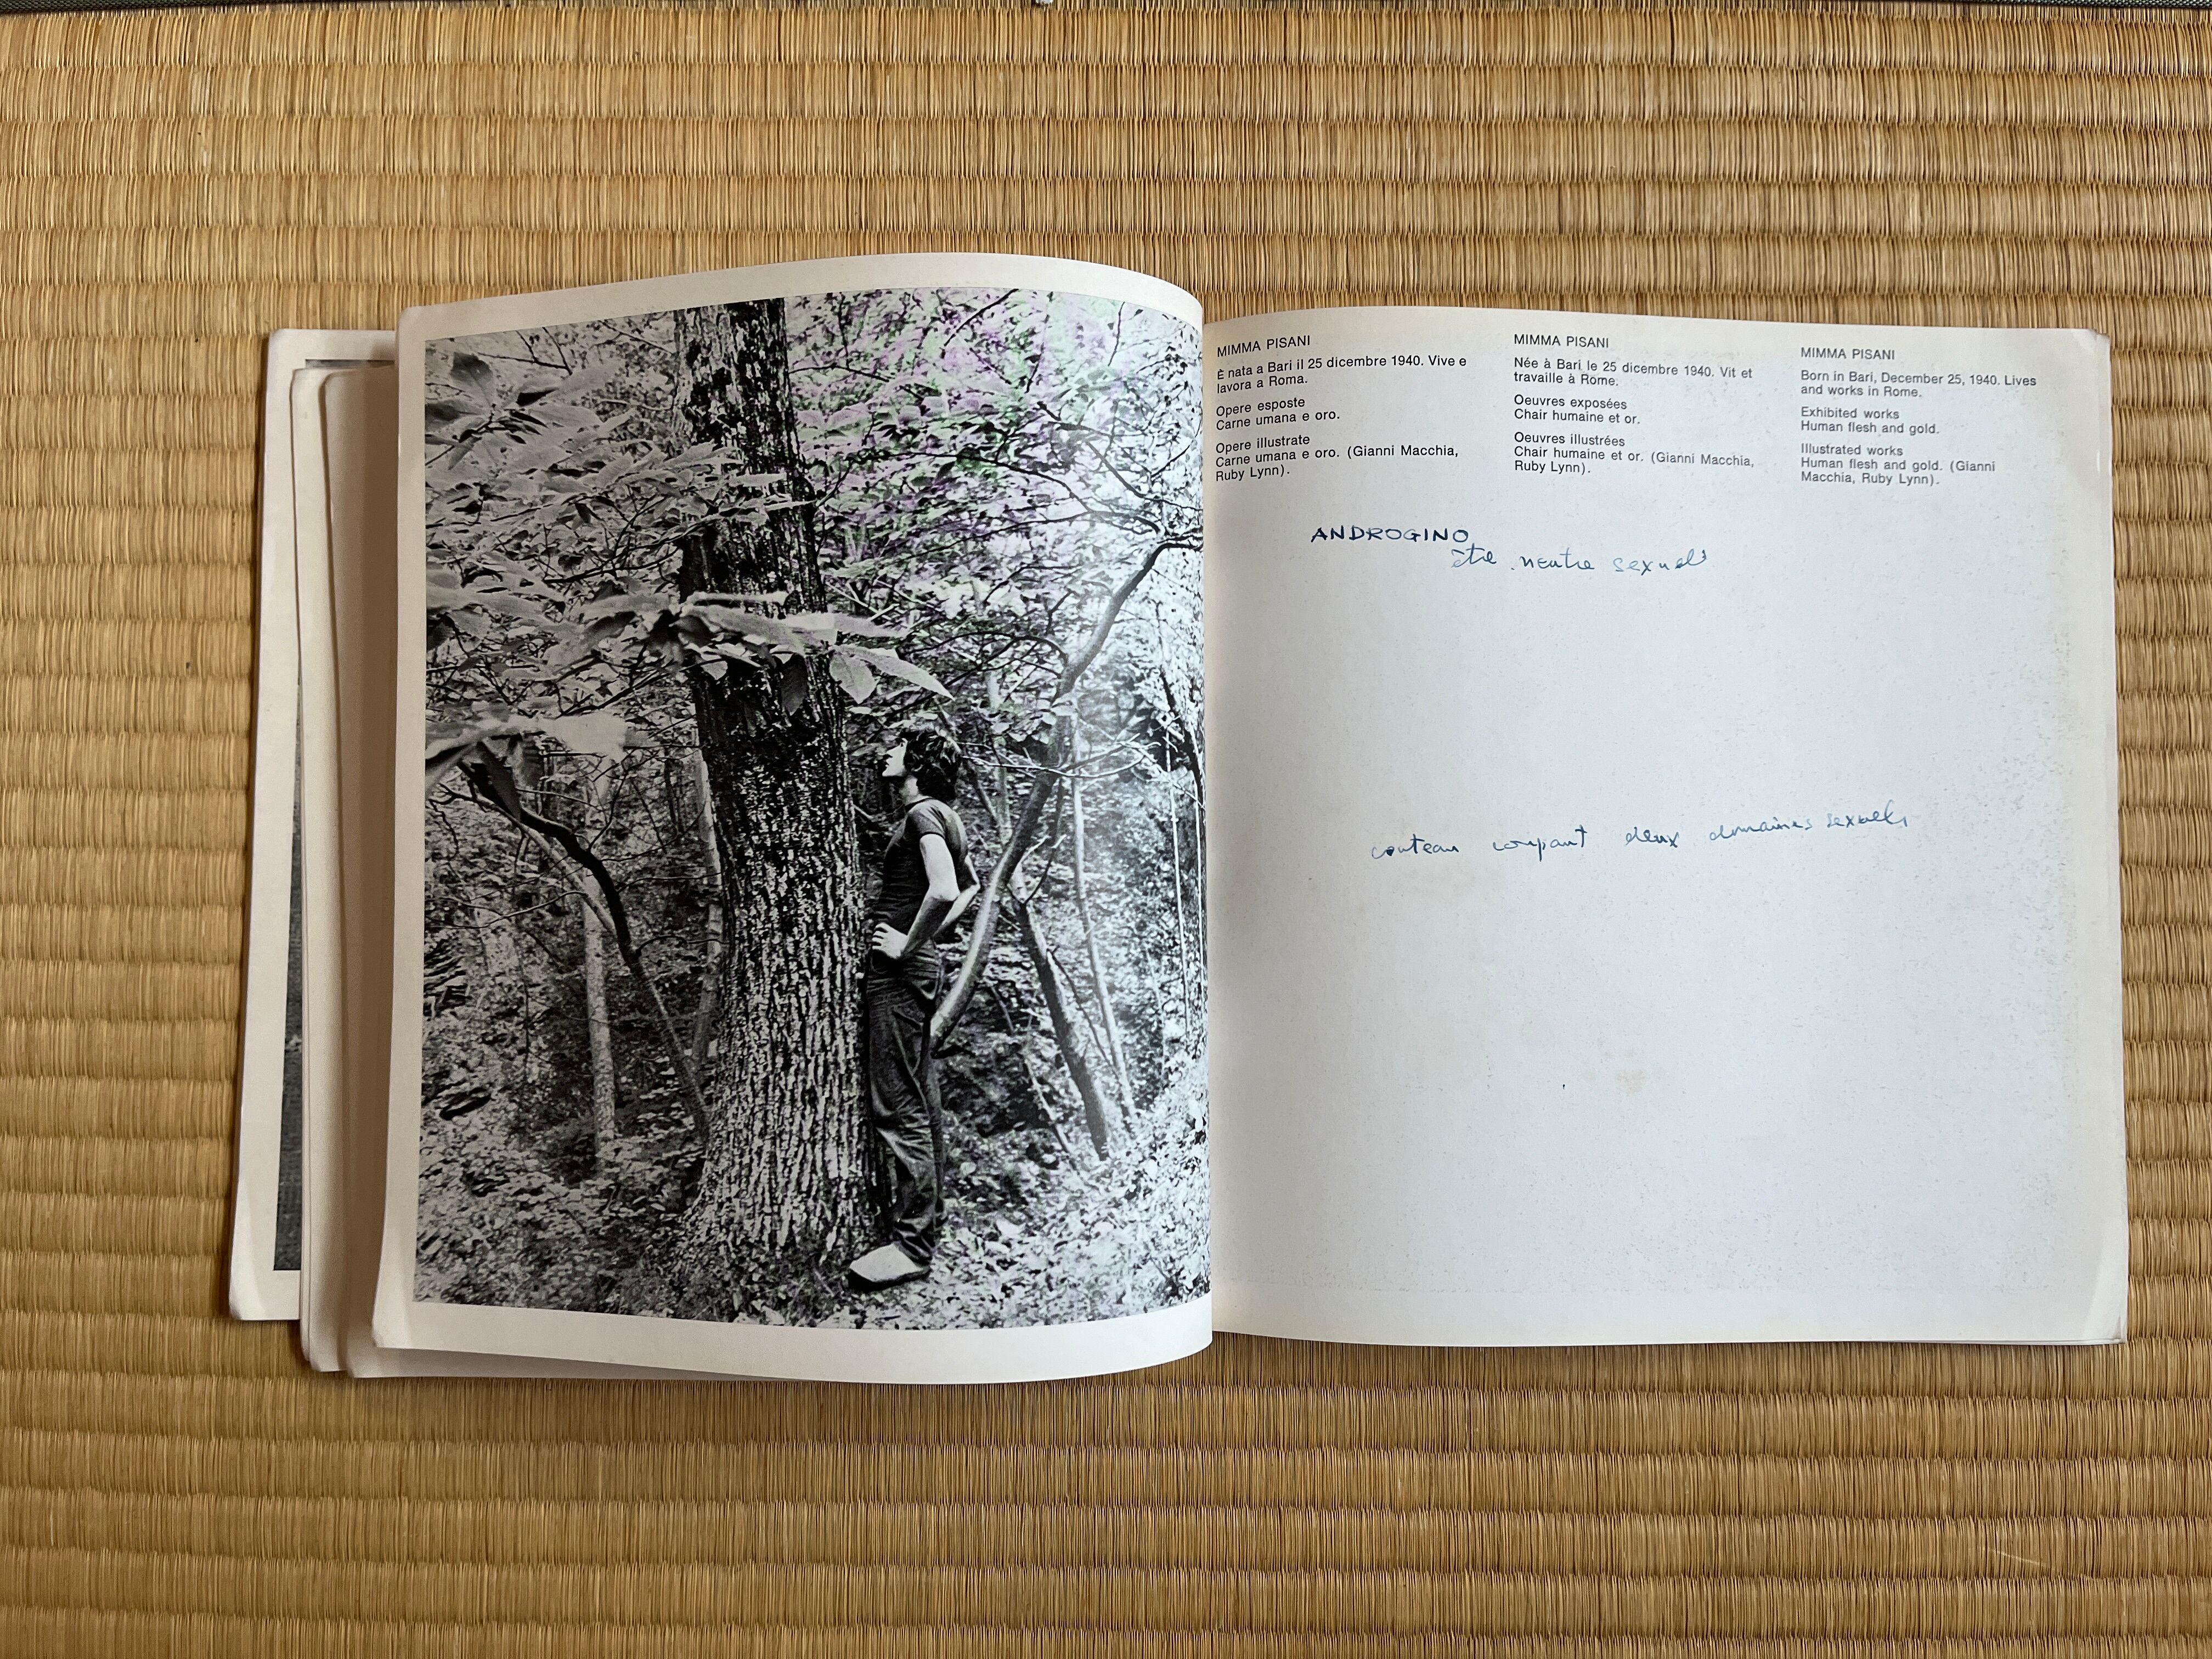 MIMMA PISANI
È nata a Bari il 25 dicembre 1940. Vive e
lavora a Roma.
Opere esposte
Carne umana e oro.
Opere illustrate
Carne umana e oro. (Gianni Macchia,
Ruby Lynn).
MIMMA PISANI
Née à Bari le 25 dicembre 1940. Vit et
travaille à Rome.
Oeuvres exposées
Chair humaine et or.
Oeuvres illustrées
Chair humaine et or. (Gianni Macchia,
Ruby Lynn).
MIMMA PISANI
Born in Bari, December 25, 1940. Lives
and works in Rome.
Exhibited works
Human flesh and gold.
Illustrated works
Human flesh and gold. (Gianni
Macchia, Ruby Lynn).
ANDROGINO
être neutre sexuels
couteau coupant deux domaines sexuels